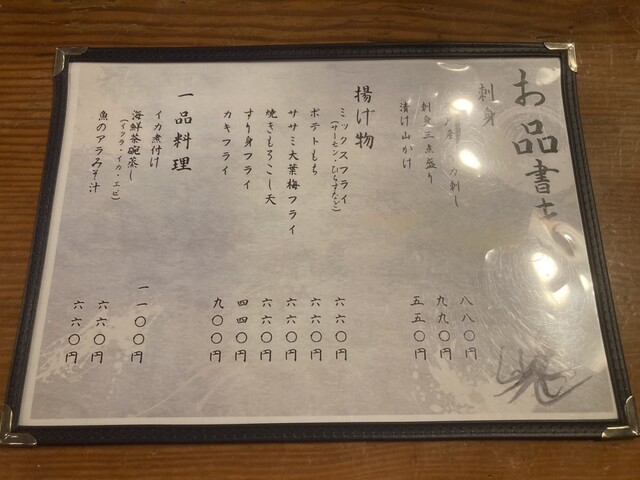 お品書き
刺身
カ刺し 八八〇円
刺身三点盛り 九九〇円
漬け山かけ 五五〇円
揚げ物
ミックスフライ 六六〇円
(サーモン・ひらすなど)
ポテトもち 六六〇円
ササミ大葉梅フライ 六六〇円
焼きもろこし天 六六〇円
すり身フライ 四四〇円
カキフライ 九〇〇円
一品料理
イカ煮付け 一一〇〇円
海鮮茶碗蒸し 六六〇円
(イクラ・イカ・エビ)
魚のアラみそ汁 六六〇円